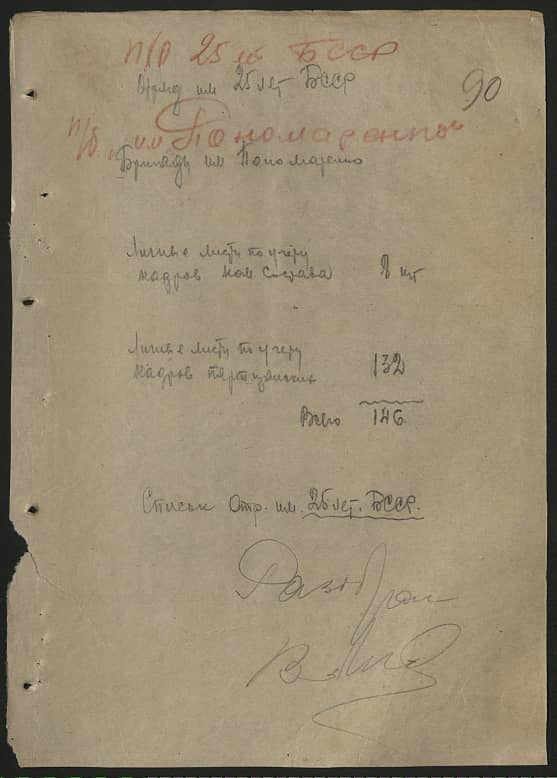 П/О 25 лет БССР
Отряд им 25 лет БССР
90
п/б "им Пономаренко"
Бригады им Пономаренко
Личные листы по учету
кадров ком. Состава
8 шт
Личные листы по учету
кадров партизанских
132
Всего 146
Список Отр. им. 25 лет. БССР.
Разобран